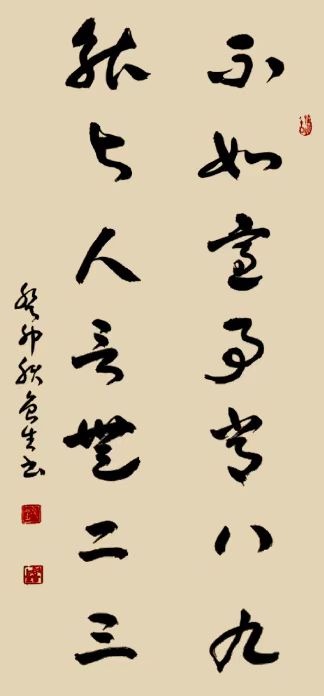 不如意事常八九
能与人言無二三
癸卯秋生书